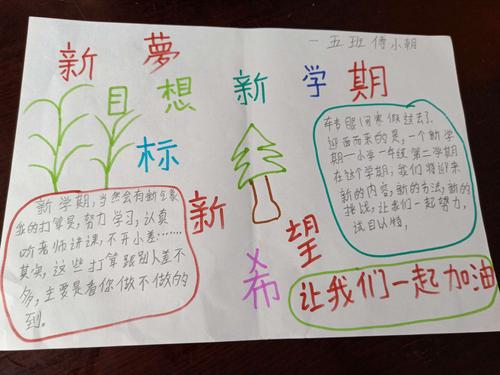 一五班傅小朝
新夢想
新学期
目标
新希望
转眼间寒假过去了,
迎面而来的是,一个新学
期一小学一年级第二学期
在这个学期,我们将迎来
新的内容,新的方法,新的
挑战,让我们一起努力,
试目以待,
新学期,当然会有新气象
我的打算是,努力学习,认真
听老师讲课,不开小差……
其实,这些打算跟别人差不
多,主要是看你做不做的
到。
让我们一起加油